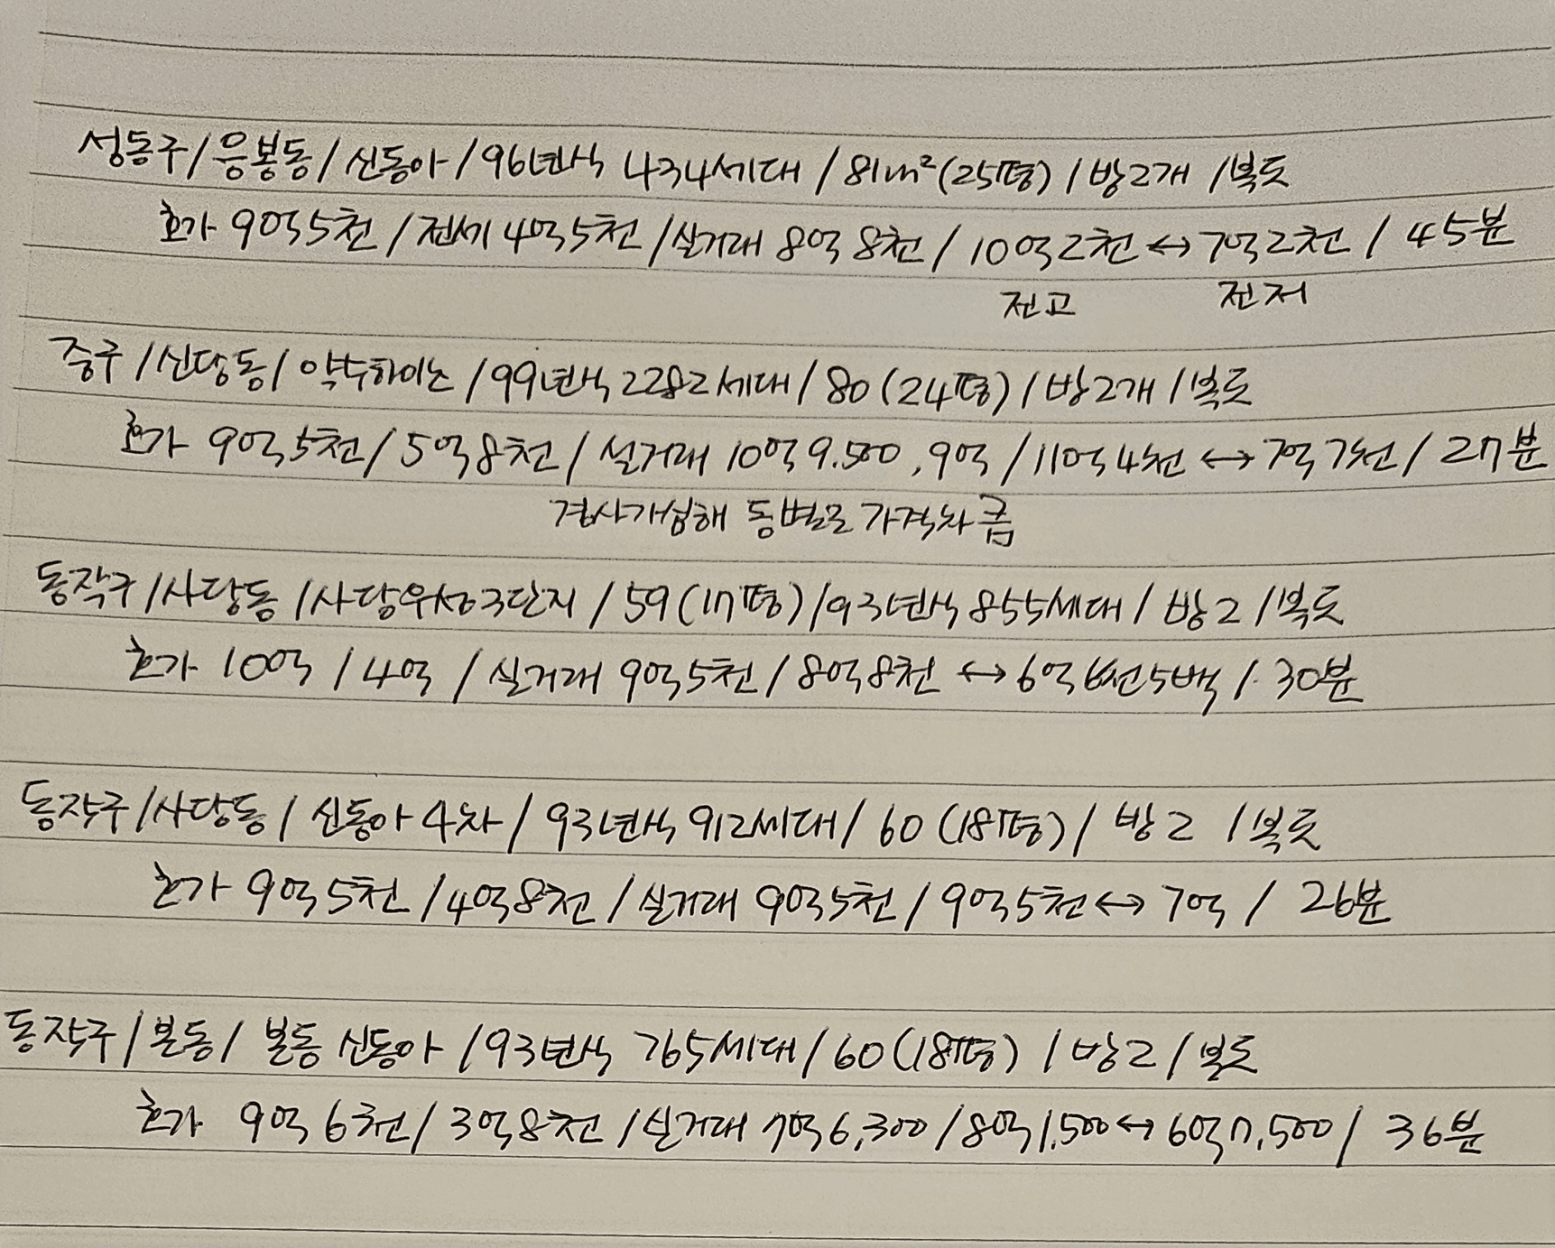 성동구/응봉동/신동아/96년식 434세대/81m²(25평)/방2개/복도
호가 9억5천/전세 4억5천/실거래 8억8천/10억2천↔7억2천/45분
전고 전저
중구/신당동/약수하이츠/99년식 2282세대/80(24평)/방2개/복도
호가 9억5천/5억8천/실거래 10억9.500,9억/11억4천↔7억7천/27분
경사가심해 동별로 가격차 큼
동작구/사당동/사당우성3단지/59(17평)/93년식 855세대/방2/복도
호가 10억/4억/실거래 9억5천/8억8천↔6억6천5백/30분
동작구/사당동/신동아4차/93년식 912세대/60(18평)/방2/복도
호가 9억5천/4억8천/실거래 9억5천/9억5천↔7억/26분
동작구/본동/본동 신동아/93년식 765세대/60(18평)/방2/복도
호가 9억6천/3억8천/실거래 7억6,300/8억1,500↔6억7,500/36분